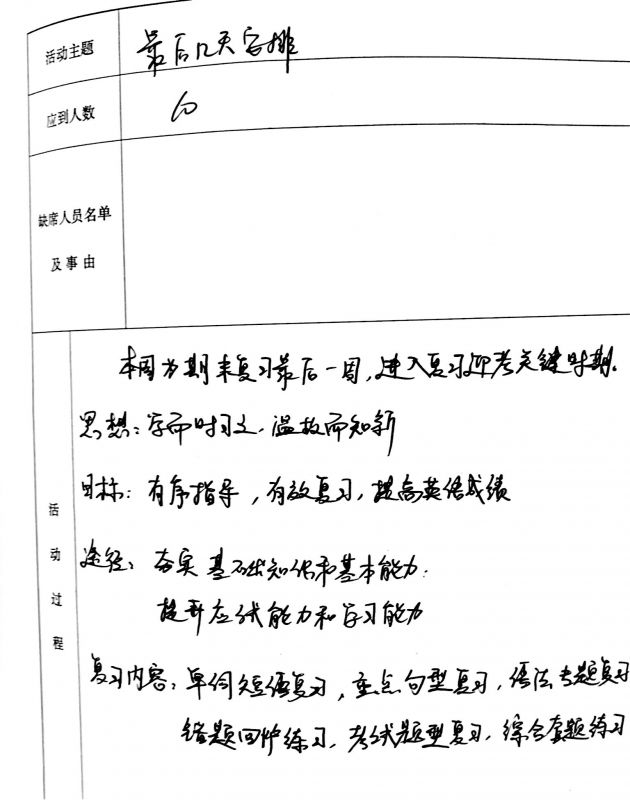 活动主题 最后几天安排
应到人数 10
缺席人员名单
及事由
活动过程
本周为期末复习最后一周，进入复习迎考关键时期。
思想：学而时习之，温故而知新
目标：有序指导，有效复习，提高英语成绩
途径：夯实基础知识和基本能力；
提升应试能力和学习能力
复习内容：单词短语复习，重点句型复习，语法专题复习
错题回炉练习，考试题型复习，综合套题练习